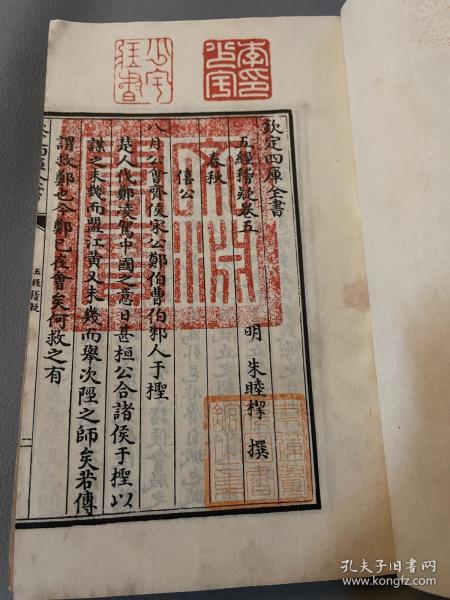 欽定四庫全書
五經稽疑卷五
明 朱睦㮮 撰
春秋
僖公
八月公會齊侯宋公鄭伯曹伯邾人于檉
楚人伐鄭凌駕中國之志日甚桓公合諸侯于檉以
謀之未幾而盟江黄又未幾而舉次陘之師矣若傳
謂救鄭也今鄭已在會矣何救之有
五經稽疑
孔夫子旧书网
www.kongfz.com